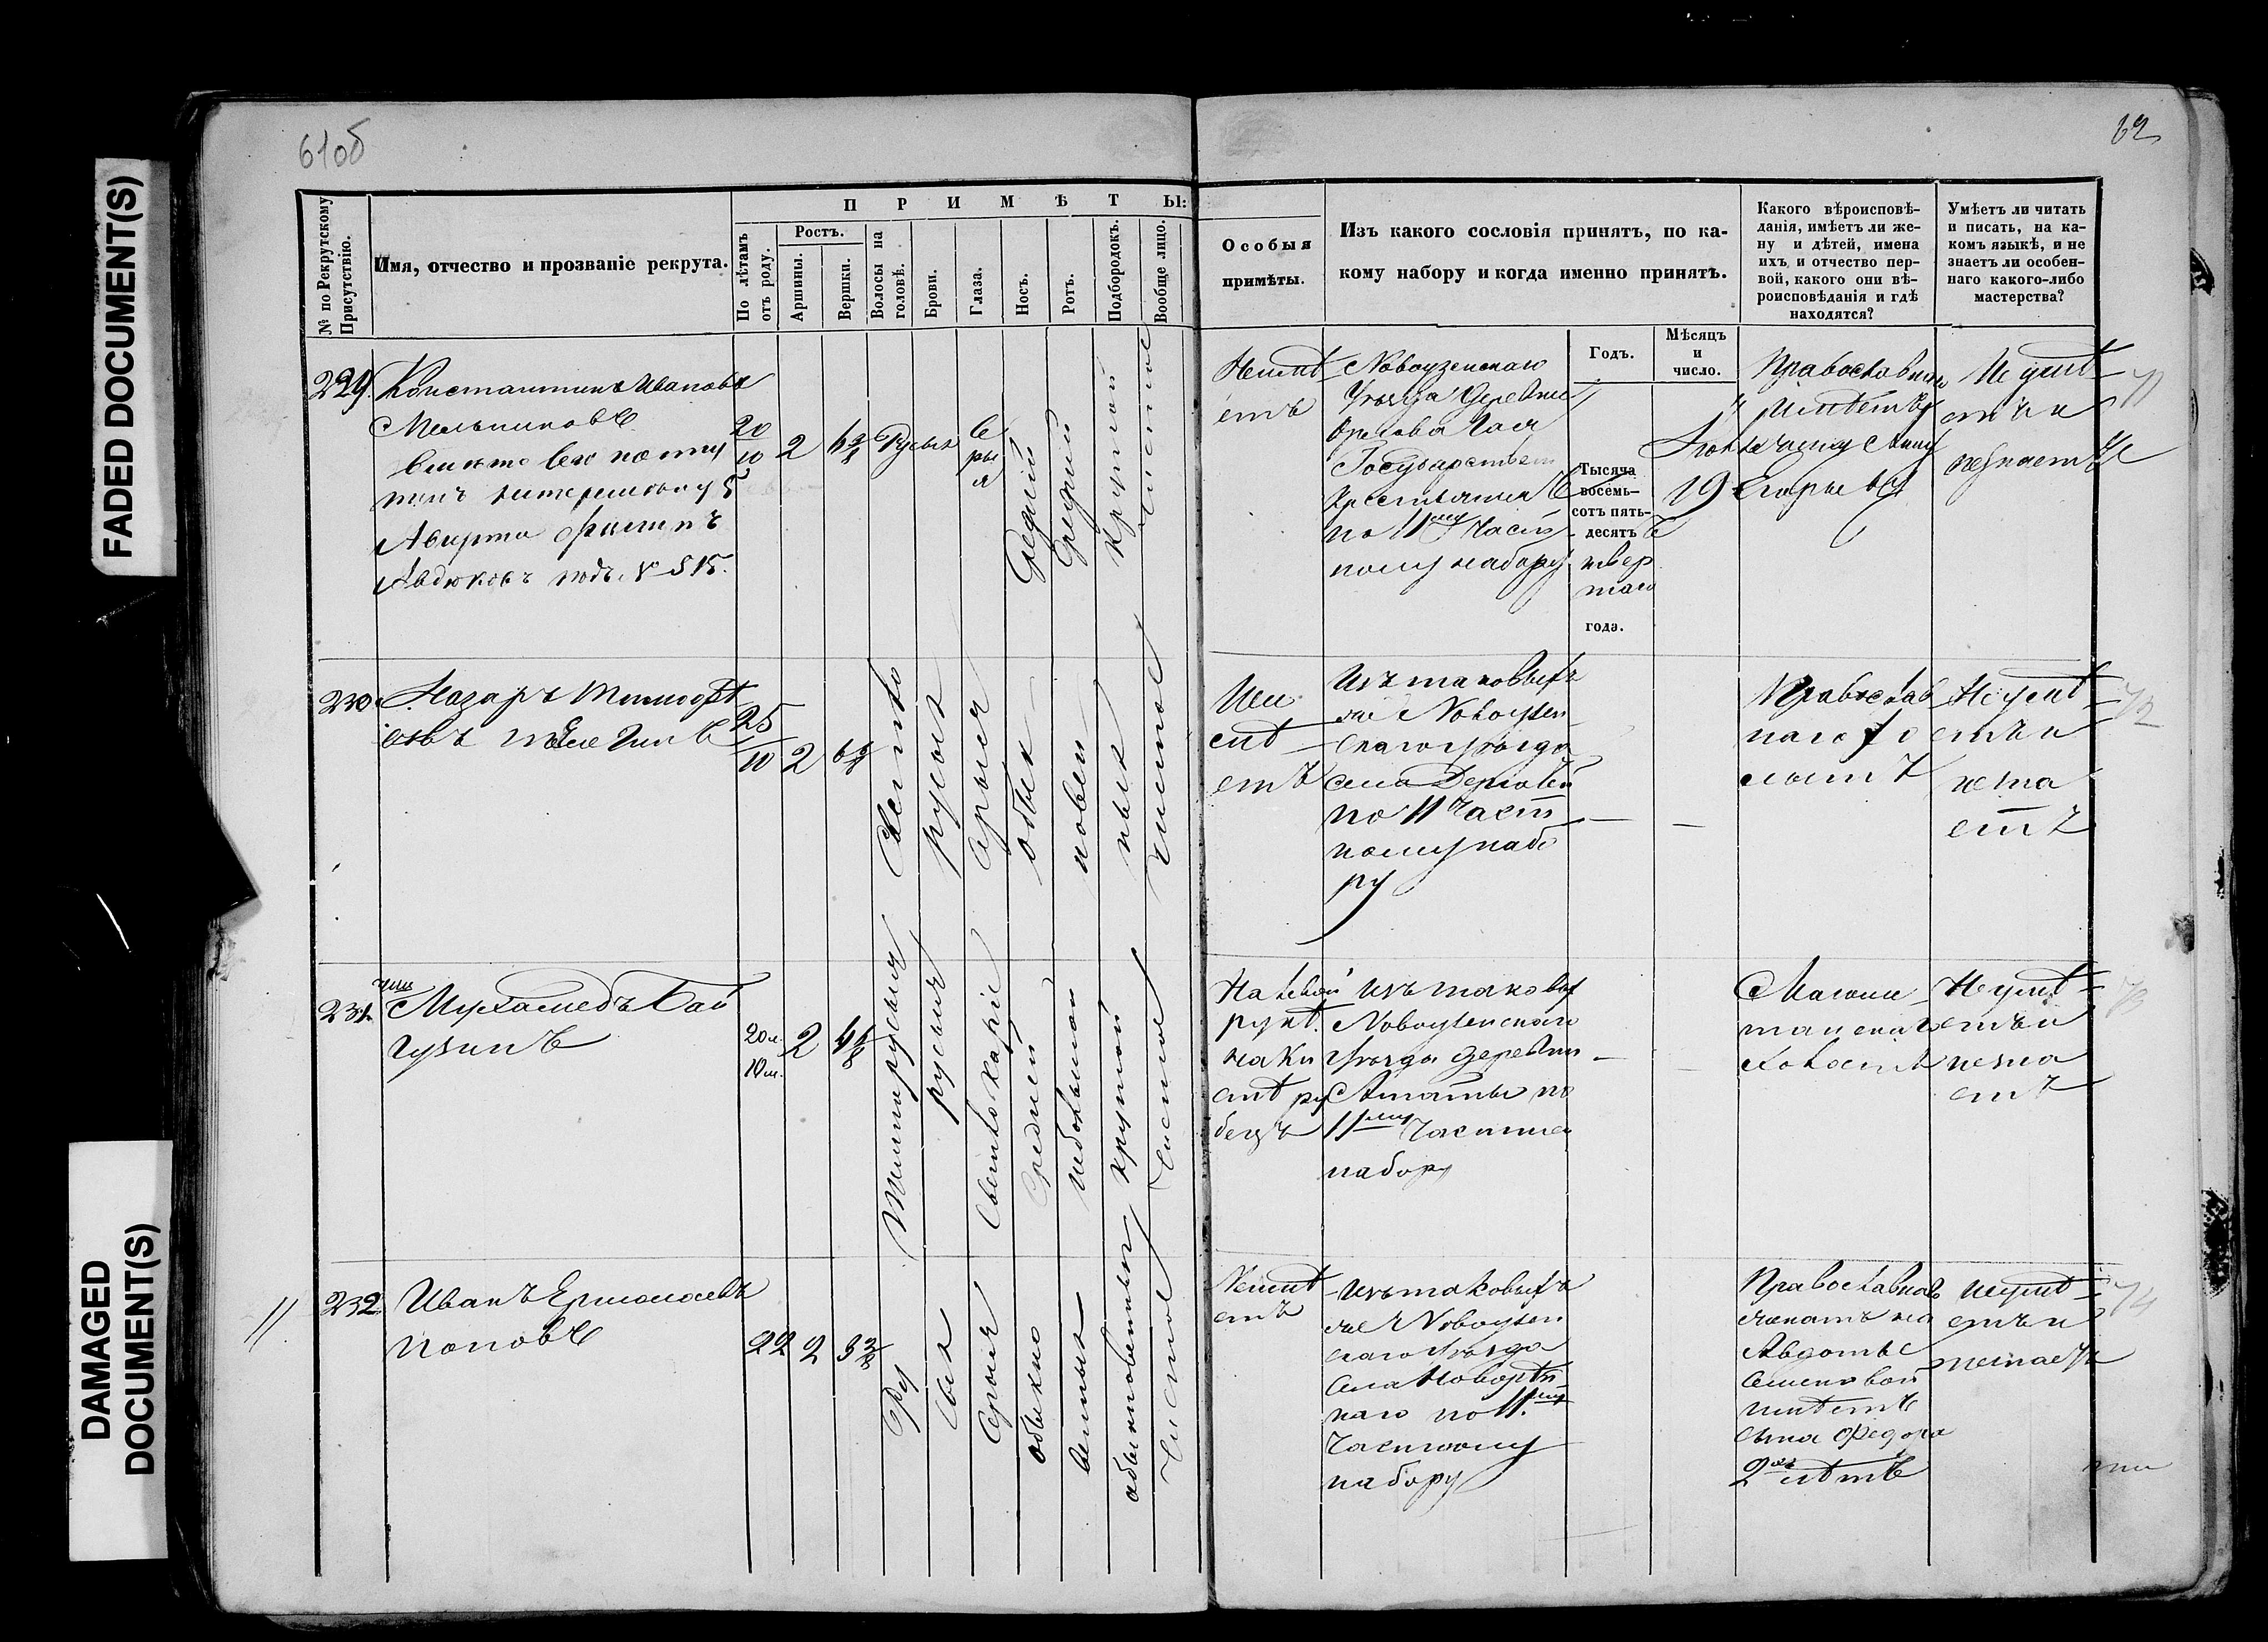 FADED DOCUMENT(S)
DAMAGED
DOCUMENT(S)
61об
62
№ по Рекрутскому
Присутствію.
Имя, отчество и прозваніе рекрута.
ПРИМѢТЫ:
По лѣтамъ
отъ роду.
Ростъ.
Аршины.
Вершки.
Волосы на
головѣ.
Брови.
Глаза.
Носъ.
Ротъ.
Подбородокъ.
Вообще лицо.
Особыя
примѣты.
Изъ какого сословія принятъ, по ка-
кому набору и когда именно принятъ.
Какого вѣроисповѣ-
данія, имѣетъ ли же-
ну и дѣтей, имена
ихъ, и отчество пер-
вой, какого они вѣ-
роисповѣданія и гдѣ
находятся?
Умѣетъ ли читать
и писать, на ка-
комъ языкѣ, и не
знаетъ ли особен-
наго какого-либо
мастерства?
Годъ.
Мѣсяцъ
и
число.
229.
Константинъ Ивановъ
Мельниковъ
Авдюковъ подъ № 515.
20
10
2
Русыя
Се
ры
я
Средній
Средній
Круглой
Чистое
Неимѣ
етъ
Новоузенскаго
Уѣзда Деревни
Орлова Гая
Государствен
Крестьянинъ
по 11му Част
ному набору
Тысяча
восемь-
сотъ пять-
десятъ
четвер
таго
года.
19
Православнаго
имѣетъ
жену Анну
Егорьеву
Не умѣ
етъ и
незнаетъ
71
230
Назаръ Тимофѣ
евъ
25
10
2
Светло
русыя
Серыя
обык
новен
ныя
чистое
Неи
мѣ
етъ
Изъ таковыхъ
же Новоузен
скаго уѣзда
села Дергачей
по 11 Част
ному набо
ру
Православ
наго хо
лостъ
Не умѣ
етъ и
незна
етъ
72
231.
Мухамедъ Бай
гузинъ
20 л.
10 м.
2
Темнорусыя
русыя
Светлокаріе
Средней
небольшой
круглой
Чистое
На левой
рукѣ
на ки
сти ру
бецъ
Изъ таковых
Новоузенскаго
Уѣзда Деревни
Алтаты по
11му Частно
набору
Магоме
танскаго
холостъ
Не умѣ
етъ и
незна
етъ
73
232.
Иванъ Ермолаевъ
Поповъ
22
2
Ру
сыя
Серыя
обыкно
венныя
обыкновенный
Чистое
Неимѣ
етъ
Изъ таковыхъ
же Новоузен
скаго Уѣзда
Села Новорѣп
наго по 11му
Частному
набору
Православнаго
женатъ на
Авдотье
Семеновой
имѣетъ
сына Федора
2хъ лѣтъ
неумѣ
етъ и
незнаетъ
74